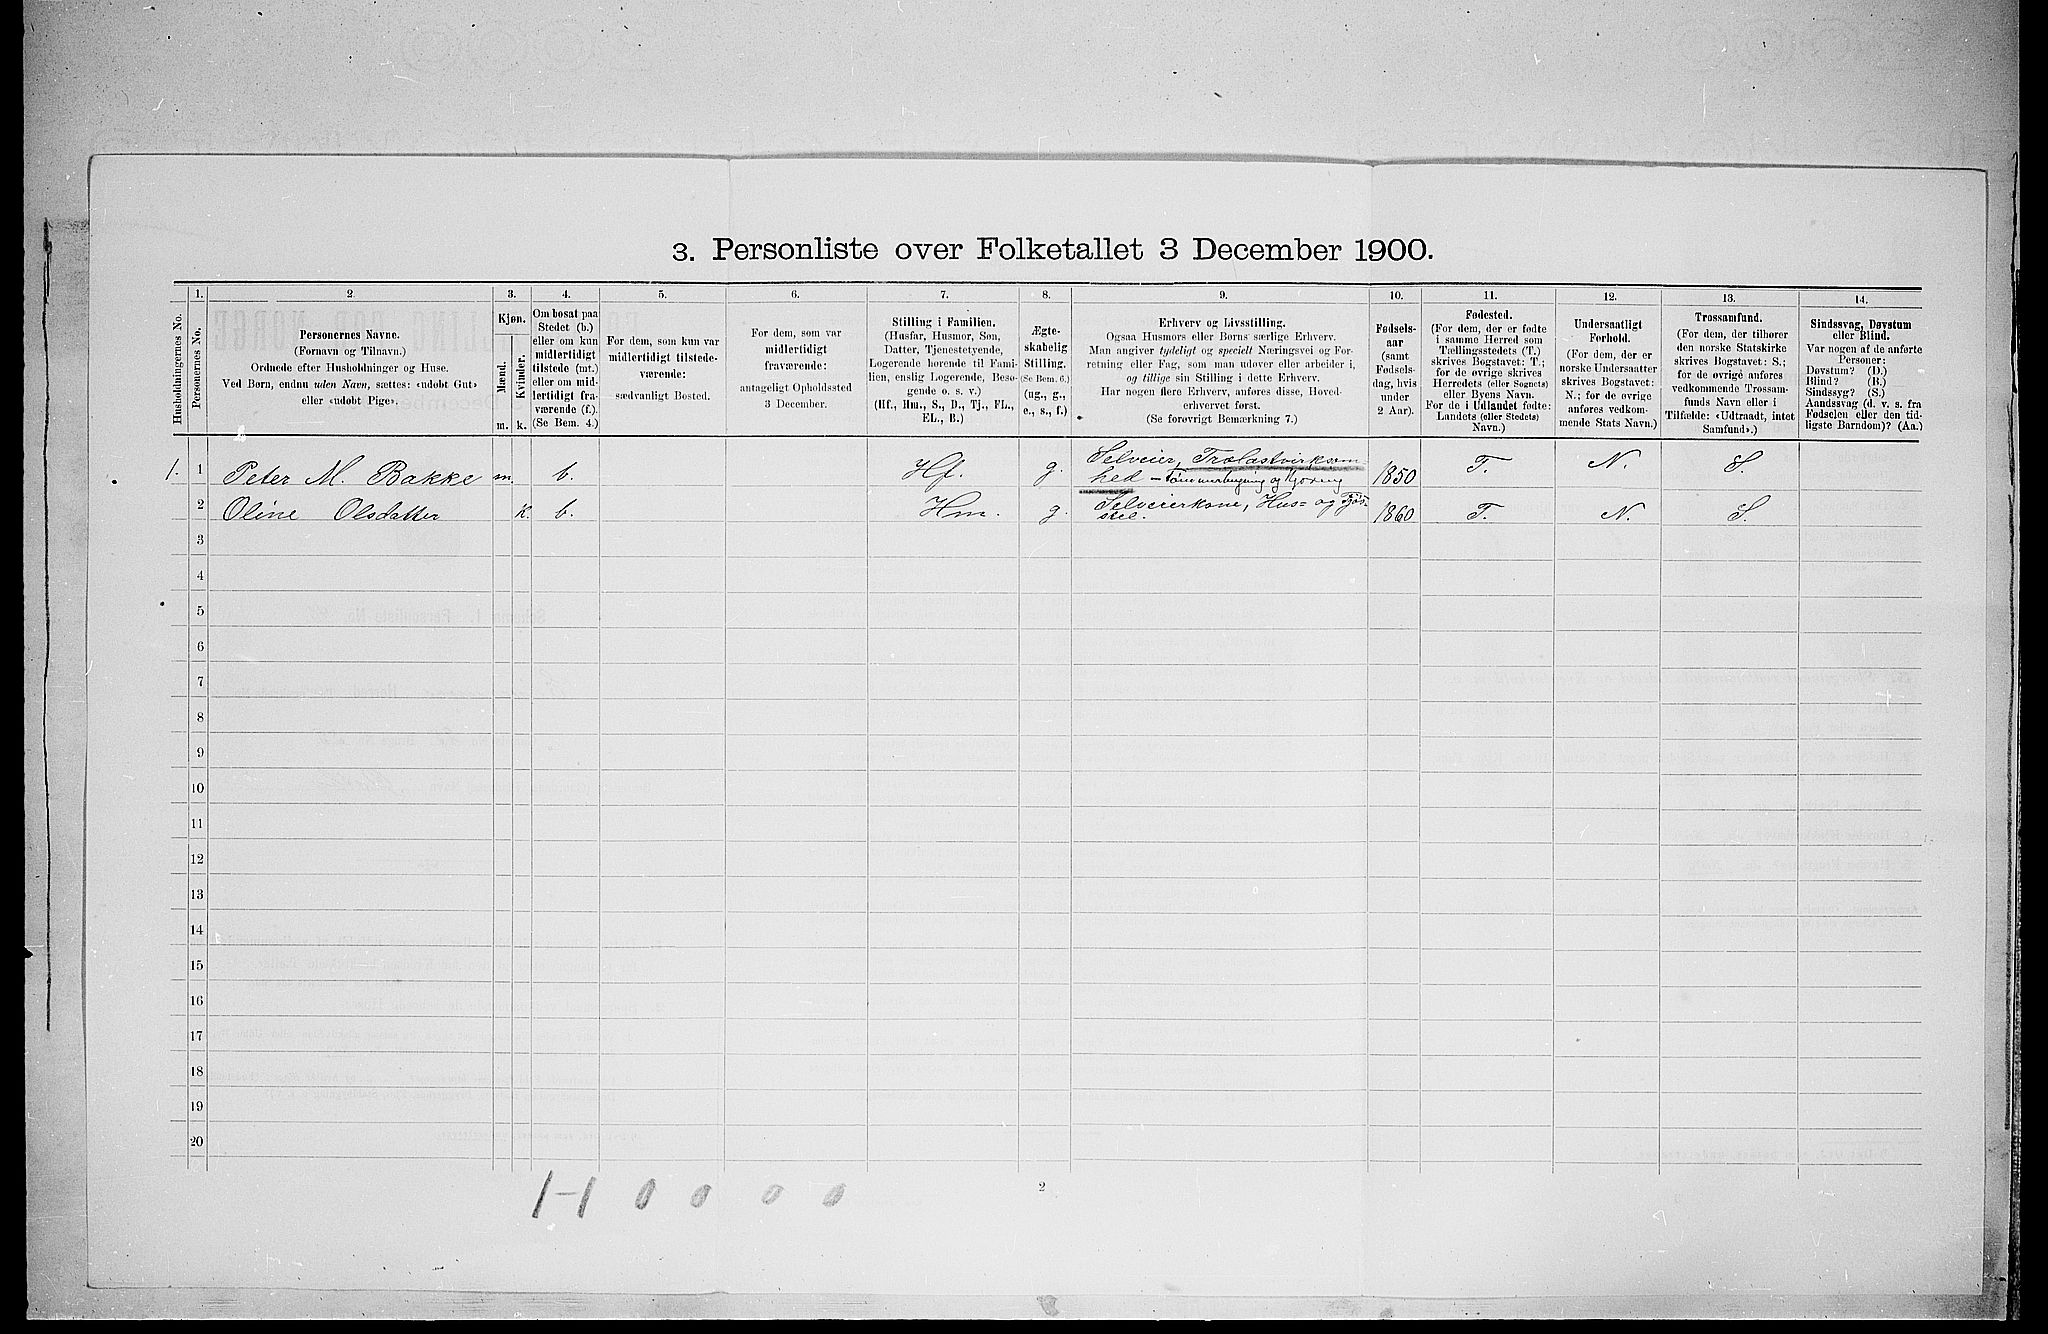 3. Personliste over Folketallet 3 December 1900.
1. 2. 3. 4. 5. 6. 7. 8. 9. 10. 11. 12. 13. 14.
Husholdningernes No.
Personernes No.
Personernes Navne.
(Fornavn og Tilnavn.)
Ordnede efter Husholdninger og Huse.
Ved Børn, endnu uden Navn, sættes: «udøbt Gut»
eller «udøbt Pige».
Kjøn.
Mænd.
Kvinder.
m. k.
Om bosat paa
Stedet (b.)
eller om kun
midlertidigt
tilstede (mt.)
eller om mid-
lertidigt fra-
værende (f.).
(Se Bem. 4.)
For dem, som kun var
midlertidigt tilstede-
værende:
sædvanligt Bosted.
For dem, som var
midlertidigt
fraværende:
antageligt Opholdssted
3 December.
Stilling i Familien.
(Husfar, Husmor, Søn,
Datter, Tjenestetyende,
Logerende hørende til Fami-
lien, enslig Logerende, Besø-
gende o. s. v.)
(Hf., Hm., S., D., Tj., FL.,
EL., B.)
Ægte-
skabelig
Stilling.
(Se Bem. 6.)
(ug., g.,
e., s., f.)
Erhverv og Livsstilling.
Ogsaa Husmors eller Børns særlige Erhverv.
Man angiver tydeligt og specielt Næringsvei og For-
retning eller Fag, som man udøver eller arbeider i,
og tillige sin Stilling i dette Erhverv.
Har nogen flere Erhverv, anføres disse, Hoved-
erhvervet først.
(Se forøvrigt Bemærkning 7.)
Fødsels-
aar
(samt
Fødsels-
dag, hvis
under
2 Aar).
Fødested.
(For dem, der er fødte
i samme Herred som
Tællingsstedets (T.)
skrives Bogstavet: T.;
for de øvrige skrives
Herredets (eller Sognets)
eller Byens Navn.
For de i Udlandet fødte:
Landets (eller Stedets)
Navn.)
Undersaatligt
Forhold.
(For dem, der er
norske Undersaatter
skrives Bogstavet:
N.; for de øvrige
anføres vedkom-
mende Stats Navn.)
Trossamfund.
(For dem, der tilhører
den norske Statskirke
skrives Bogstavet: S.;
for de øvrige anføres
vedkommende Trossam-
funds Navn eller i
Tilfælde: «Udtraadt, intet
Samfund».)
Sindssvag, Døvstum
eller Blind.
Var nogen af de anførte
Personer:
Døvstum? (D.)
Blind? (B.)
Sindssyg? (S.)
Aandssvag (d. v. s. fra
Fødselen eller den tid-
ligste Barndom)? (Aa.)
1. 1 Peter M. Bakke m. b. Hf. g. Selveier, Trælastvirksom
hed – Tømmerhugning og Kjøring 1850 T. N. S.
2 Oline Olsdatter k. b. Hm. g. Selveierkone, Hus= og Fjøs-
stel. 1860 T. N. S.
3
4
5
6
7
8
9
10
11
12
13
14
15
16
17
18
19
20
1-1 0 0 0 0
2